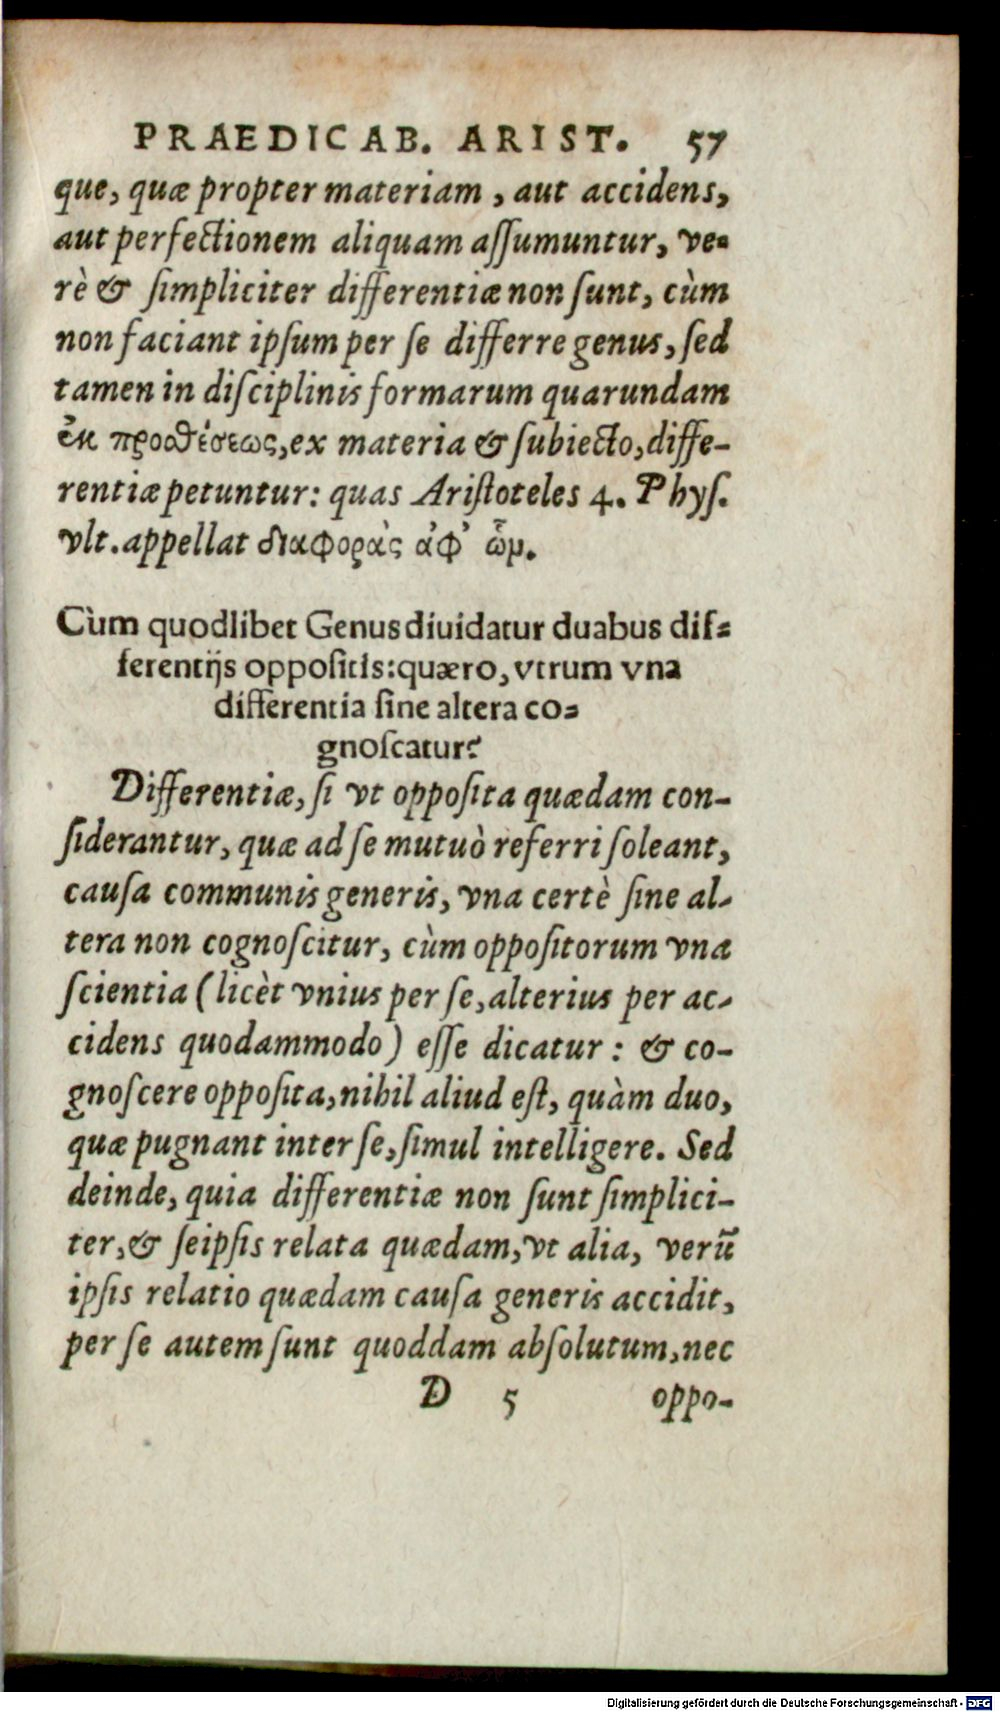 PRAEDICAB. ARIST. 57
que, quæ propter materiam, aut accidens,
aut perfectionem aliquam aſſumuntur, ve-
rè & ſimpliciter differentiæ non ſunt, cùm
non faciant ipſum per ſe differre genus, ſed
tamen in diſciplinis formarum quarundam
ἐκ προσθέσεως, ex materia & ſubiecto, diffe-
rentiæ petuntur: quas Ariſtoteles 4. Phyſ.
vlt. appellat διαφορὰς ἀφ' ὧμ.
Cùm quodlibet Genus diuidatur duabus dif-
ferentijs oppoſitis: quæro, vtrum vna
differentia ſine altera co-
gnoſcatur?
Differentiæ, ſi vt oppoſita quædam con-
ſiderantur, quæ ad ſe mutuò referri ſoleant,
cauſa communis generis, vna certè ſine al-
tera non cognoſcitur, cùm oppoſitorum vna
ſcientia (licèt vnius per ſe, alterius per ac-
cidens quodammodo) eſſe dicatur: & co-
gnoſcere oppoſita, nihil aliud eſt, quàm duo,
quæ pugnant inter ſe, ſimul intelligere. Sed
deinde, quia differentiæ non ſunt ſimplici-
ter, & ſeipſis relata quædam, vt alia, verū
ipſis relatio quædam cauſa generis accidit,
per ſe autem ſunt quoddam abſolutum, nec
D 5 oppo-
Digitalisierung gefördert durch die Deutsche Forschungsgemeinschaft - DFG